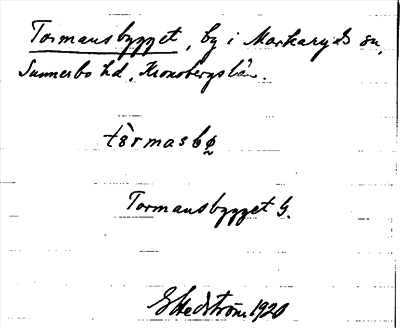 Tormansbygget, by i Markaryds sn,
Sunnerbo hd, Kronobergs län.
tòrmasbø̰
Tormansbygget G.
G Hedström 1920